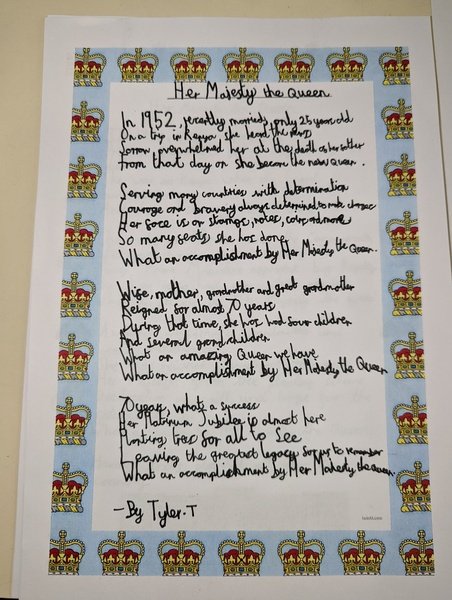 Her Majesty the Queen
In 1952, recently married, only 25 years old
On a trip in Kenya, she heard the news
Sorrow overwhelmed her at the death of her father
From that day on she became the new Queen.
Serving many countries with determination
Courage and bravery always determined to make change
Her face is on stamps, notes, coins and more
So many feats she has done
What an accomplishment by Her Majesty the Queen.
Wise, mother, grandmother and great grandmother
Reigned for almost 70 years
During that time, she has had four children
And several grandchildren
What an amazing Queen we have
What an accomplishment by Her Majesty the Queen
70 years, what a success
Her Platinum Jubilee is almost here
Planting trees for all to see
Leaving the greatest legacy for us to remember
What an accomplishment by Her Majesty the Queen.
-By Tyler.T